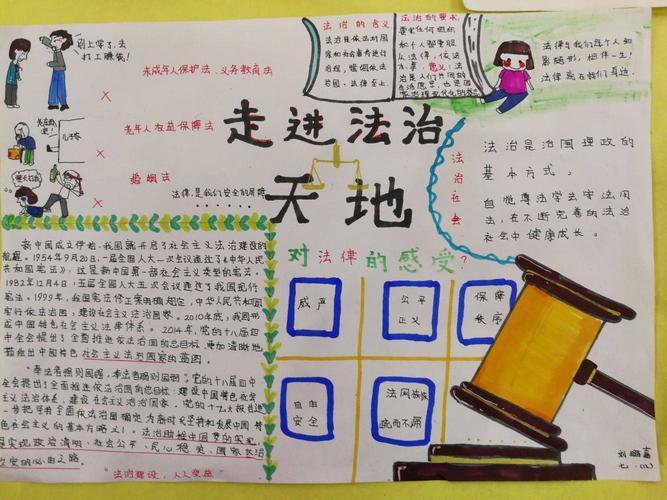 别上学了,去
打工赚钱!
未成年人保护法、义务教育法
老年人权益保障法
婚姻法
法律是我们安全的屏障
走进法治
天地
法治的含义
法治是依法对国
家和社会事务进行
治理,强调依法
治国、法律至上,
法治的要求
要求任何组织
和个人都要服
从法律,依法
意义:法
法律与我们每个人如
影随形,相伴一生!
法律就在我们身边.
法治社会
法治是治国理政的
基本方式。
自觉尊法学法守法用
法,在不断完善的法治
社会中健康成长。
对法律的感受?
威严
公平
正义
保障
秩序
自由
安全
法网恢恢
疏而不漏
新中国成立伊始,我国就开启了社会主义法治建设的
航程。1954年9月20日,一届全国人大一次会议通过了《中华人民
共和国宪法》,这是新中国第一部社会主义类型的宪法.
1982年12月4日,五届全国人大五次会议通过了我国现行
宪法。1999年,我国宪法修正案明确规定,中华人民共和国
实行依法治国,建设社会主义法治国家。2010年底,我国形
成中国特色社会主义法律体系。2014年,党的十八届四
中全会提出了全面推进依法治国的总目标,更加清晰地
指出中国特色社会主义法治国家的意图。
"奉法者强则国强,奉法者弱则国弱"。党的十八届四中
全会提出全面推进依法治国的总目标:建设中国特色社会
主义法治体系,建设社会主义法治国家。党的十九大报告进
一步把坚持全面依法治国确定为新时代坚持和发展中国特
色社会主义的基本方略之一。法治助推中国梦的实现,
是实现政治清明、社会公平、民心稳定、国家长治
久安的必由之路。
"法治建设,人人受益"
七.(12)